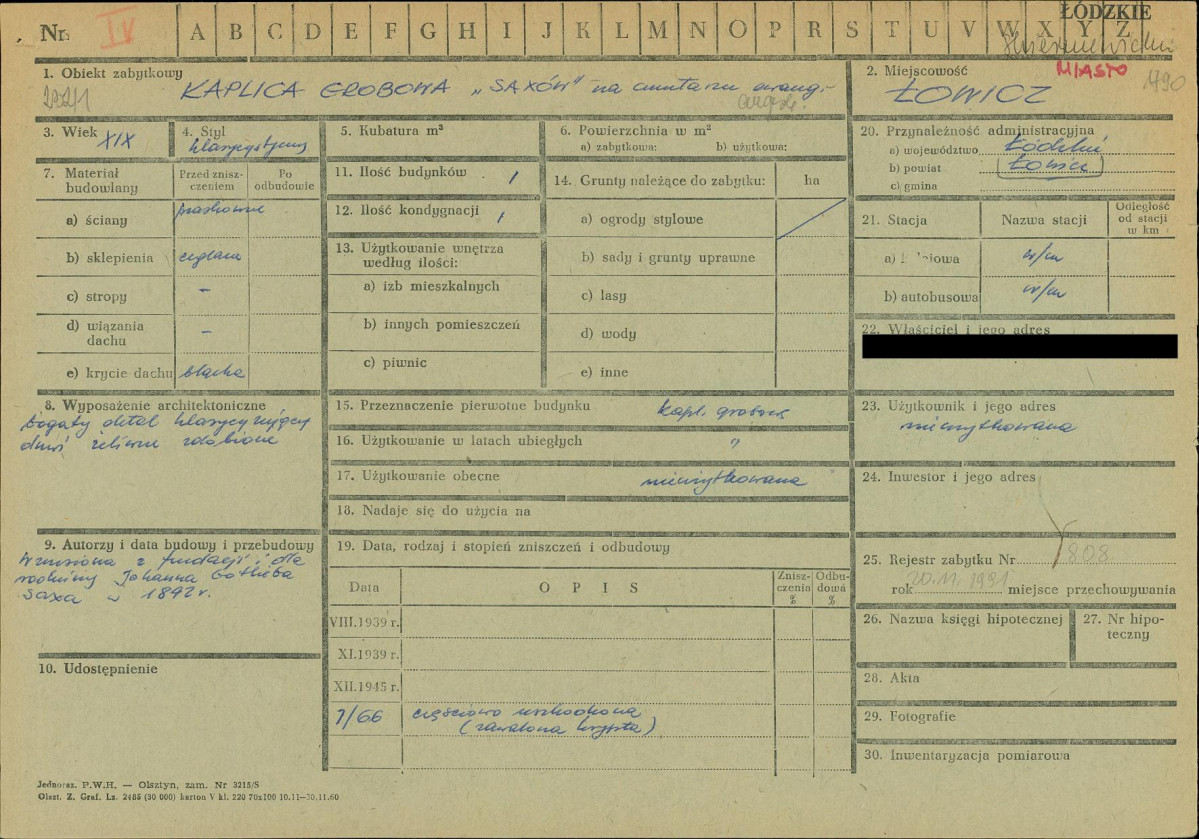 Nr. IV A B C D E F G H I J K L M N O P R S T U V W X Y Z
ŁÓDZKIE
1. Obiekt zabytkowy
KAPLICA GROBOWA „SAXÓW" na cmentarzu ewang.-
2. Miejscowość MIASTO 490
ŁOWICZ
3. Wiek XIX
4. Styl klasycystyczny
5. Kubatura m³
6. Powierzchnia w m²
a) zabytkowa: b) użytkowa:
20. Przynależność administracyjna
a) województwo Łódzkie
b) powiat Łowicz
c) gmina
7. Materiał budowlany
Przed zniszczeniem
Po odbudowie
a) ściany piaskowiec
b) sklepienia ceglana
c) stropy –
d) wiązania dachu –
e) krycie dachu blacha
11. Ilość budynków 1
12. Ilość kondygnacji 1
13. Użytkowanie wnętrza
według ilości:
a) izb mieszkalnych
b) innych pomieszczeń
c) piwnic
14. Grunty należące do zabytku: ha
a) ogrody stylowe
b) sady i grunty uprawne
c) lasy
d) wody
e) inne
21. Stacja
Nazwa stacji
Odległość
od stacji
w km
a) w/m
b) autobusowa w/m
22. Właściciel i jego adres
8. Wyposażenie architektoniczne
bogaty detal klasycyzujący
drzwi żeliwne zdobione
15. Przeznaczenie pierwotne budynku kapl. grobowa
16. Użytkowanie w latach ubiegłych "
17. Użytkowanie obecne nieużytkowana
18. Nadaje się do użycia na
23. Użytkownik i jego adres
nieużytkowana
24. Inwestor i jego adres
9. Autorzy i data budowy i przebudowy
Wzniesiona z fundacji i dla
rodziny Johanna Gotlieba
Saxa w 1892 r.
10. Udostępnienie
19. Data, rodzaj i stopień zniszczeń i odbudowy
Data
OPIS
Zniszczenia %
Odbudowa %
VIII.1939 r.
XI.1939 r.
XII.1945 r.
7/66 częściowo uszkodzona
(zawalona krypta)
25. Rejestr zabytku Nr 808
rok 20.11.1991 miejsce przechowywania
26. Nazwa księgi hipotecznej
27. Nr hipoteczny
28. Akta
29. Fotografie
30. Inwentaryzacja pomiarowa
Jednoraz. P.W.H. — Olsztyn, zam. Nr 3215/S
Olszt. Z. Graf. Lz. 2485 (30 000) karton V kl. 220 70x100 10.11—30.11.60